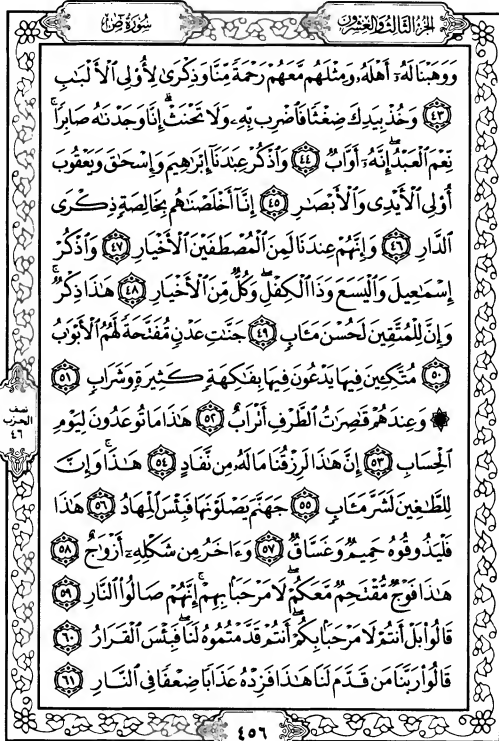 الجزء الثالث والعشرون
سُورَةُ صٓ
وَوَهَبْنَا لَهُۥٓ أَهْلَهُۥ وَمِثْلَهُم مَّعَهُمْ رَحْمَةً مِّنَّا وَذِكْرَىٰ لِأُوْلِي ٱلْأَلْبَٰبِ
﴿٤٣﴾ وَخُذْ بِيَدِكَ ضِغْثًا فَٱضْرِب بِّهِۦ وَلَا تَحْنَثْ ۗ إِنَّا وَجَدْنَٰهُ صَابِرًا ۚ
نِّعْمَ ٱلْعَبْدُ ۖ إِنَّهُۥٓ أَوَّابٌ ﴿٤٤﴾ وَٱذْكُرْ عِبَٰدَنَآ إِبْرَٰهِيمَ وَإِسْحَٰقَ وَيَعْقُوبَ
أُوْلِي ٱلْأَيْدِي وَٱلْأَبْصَٰرِ ﴿٤٥﴾ إِنَّآ أَخْلَصْنَٰهُم بِخَالِصَةٍ ذِكْرَى
ٱلدَّارِ ﴿٤٦﴾ وَإِنَّهُمْ عِندَنَا لَمِنَ ٱلْمُصْطَفَيْنَ ٱلْأَخْيَارِ ﴿٤٧﴾ وَٱذْكُرْ
إِسْمَٰعِيلَ وَٱلْيَسَعَ وَذَا ٱلْكِفْلِ ۖ وَكُلٌّ مِّنَ ٱلْأَخْيَارِ ﴿٤٨﴾ هَٰذَا ذِكْرٌ ۚ
وَإِنَّ لِلْمُتَّقِينَ لَحُسْنَ مَـَٔابٍ ﴿٤٩﴾ جَنَّٰتِ عَدْنٍ مُّفَتَّحَةً لَّهُمُ ٱلْأَبْوَٰبُ
﴿٥٠﴾ مُتَّكِـِٔينَ فِيهَا يَدْعُونَ فِيهَا بِفَٰكِهَةٍ كَثِيرَةٍ وَشَرَابٍ ﴿٥١﴾
۞ وَعِندَهُمْ قَٰصِرَٰتُ ٱلطَّرْفِ أَتْرَابٌ ﴿٥٢﴾ هَٰذَا مَا تُوعَدُونَ لِيَوْمِ
ٱلْحِسَابِ ﴿٥٣﴾ إِنَّ هَٰذَا لَرِزْقُنَا مَا لَهُۥ مِن نَّفَادٍ ﴿٥٤﴾ هَٰذَا ۚ وَإِنَّ
لِلطَّٰغِينَ لَشَرَّ مَـَٔابٍ ﴿٥٥﴾ جَهَنَّمَ يَصْلَوْنَهَا فَبِئْسَ ٱلْمِهَادُ ﴿٥٦﴾ هَٰذَا
فَلْيَذُوقُوهُ حَمِيمٌ وَغَسَّاقٌ ﴿٥٧﴾ وَءَاخَرُ مِن شَكْلِهِۦٓ أَزْوَٰجٌ ﴿٥٨﴾
هَٰذَا فَوْجٌ مُّقْتَحِمٌ مَّعَكُمْ ۖ لَا مَرْحَبًۢا بِهِمْ ۚ إِنَّهُمْ صَالُواْ ٱلنَّارِ ﴿٥٩﴾
قَالُواْ بَلْ أَنتُمْ لَا مَرْحَبًۢا بِكُمْ ۖ أَنتُمْ قَدَّمْتُمُوهُ لَنَا ۖ فَبِئْسَ ٱلْقَرَارُ ﴿٦٠﴾
قَالُواْ رَبَّنَا مَن قَدَّمَ لَنَا هَٰذَا فَزِدْهُ عَذَابًا ضِعْفًا فِي ٱلنَّارِ ﴿٦١﴾
نصف
الحزب
٤٦
٤٥٦